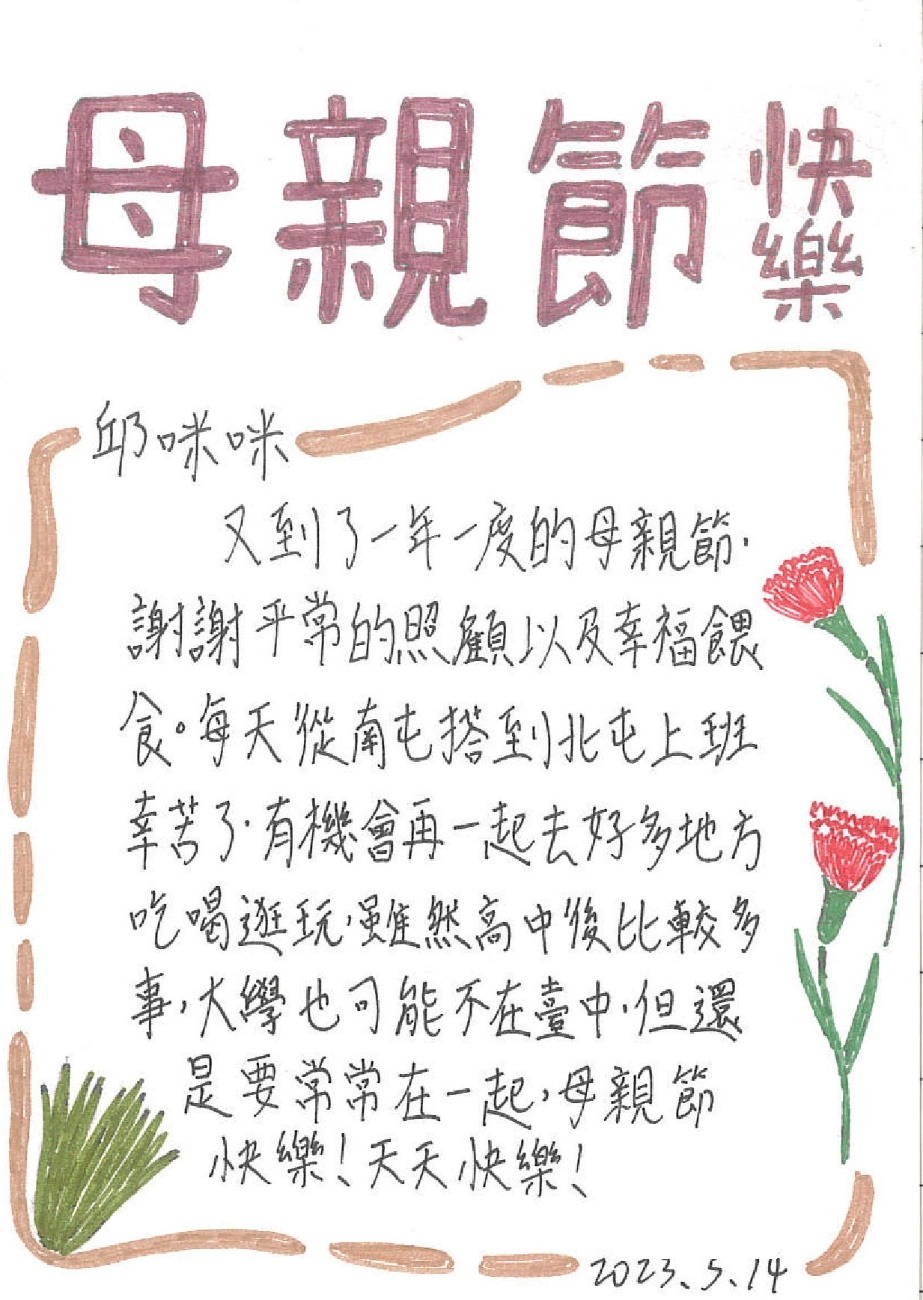 母親節快樂
邱咪咪
又到了一年一度的母親節,
謝謝平常的照顧以及幸福餵
食。每天從南屯搭到北屯上班
辛苦了,有機會再一起去好多地方
吃喝逛玩,雖然高中後比較多
事,大學也可能不在臺中,但還
是要常常在一起,母親節
快樂!天天快樂!
2023.5.14